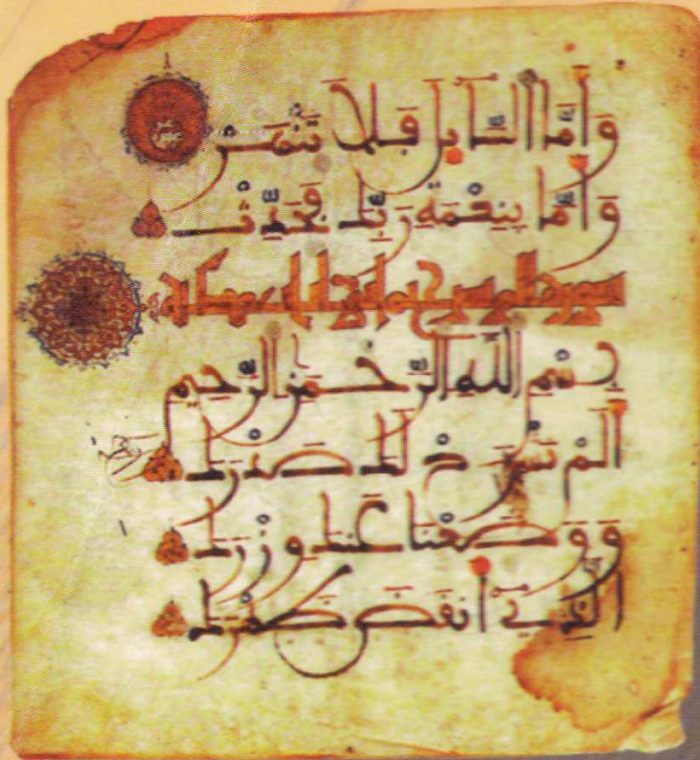 وَأَمَّا ٱلسَّآئِلَ فَلَا تَنْهَرْ
وَأَمَّا بِنِعْمَةِ رَبِّكَ فَحَدِّثْ
سورة ألم نشرح
بِسْمِ ٱللَّهِ ٱلرَّحْمَٰنِ ٱلرَّحِيمِ
أَلَمْ نَشْرَحْ لَكَ صَدْرَكَ
وَوَضَعْنَا عَنكَ وِزْرَكَ
ٱلَّذِي أَنقَضَ ظَهْرَكَ